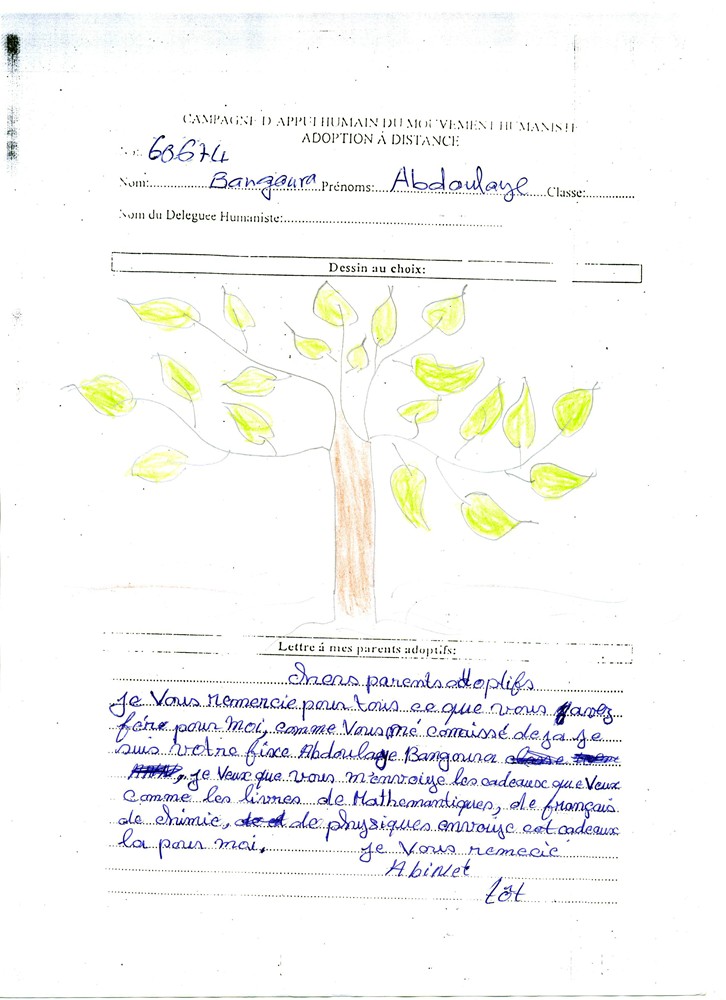 CAMPAGNE D'APPUI HUMAIN DU MOUVEMENT HUMANISTE
ADOPTION À DISTANCE
68674
Nom: Bangoura Prénoms: Abdoulaye Classe:
Nom du Deleguee Humaniste:
Dessin au choix:
Lettre á mes parents adoptifs:
chers parents adoptifs
Je Vous remercie pour tous ce que vous avez
fére pour moi, comme Vous mé conaissé deja. Je
suis votre fixe Abdoulaye Bangoura
, je Veux que vous m'envoiye les cadeaux que Veux
comme les livres de Mathemantiques, de français
de chimie, de physiques envoyé cat cadeaux
la pour moi, je Vous remecie
Abinet
tot